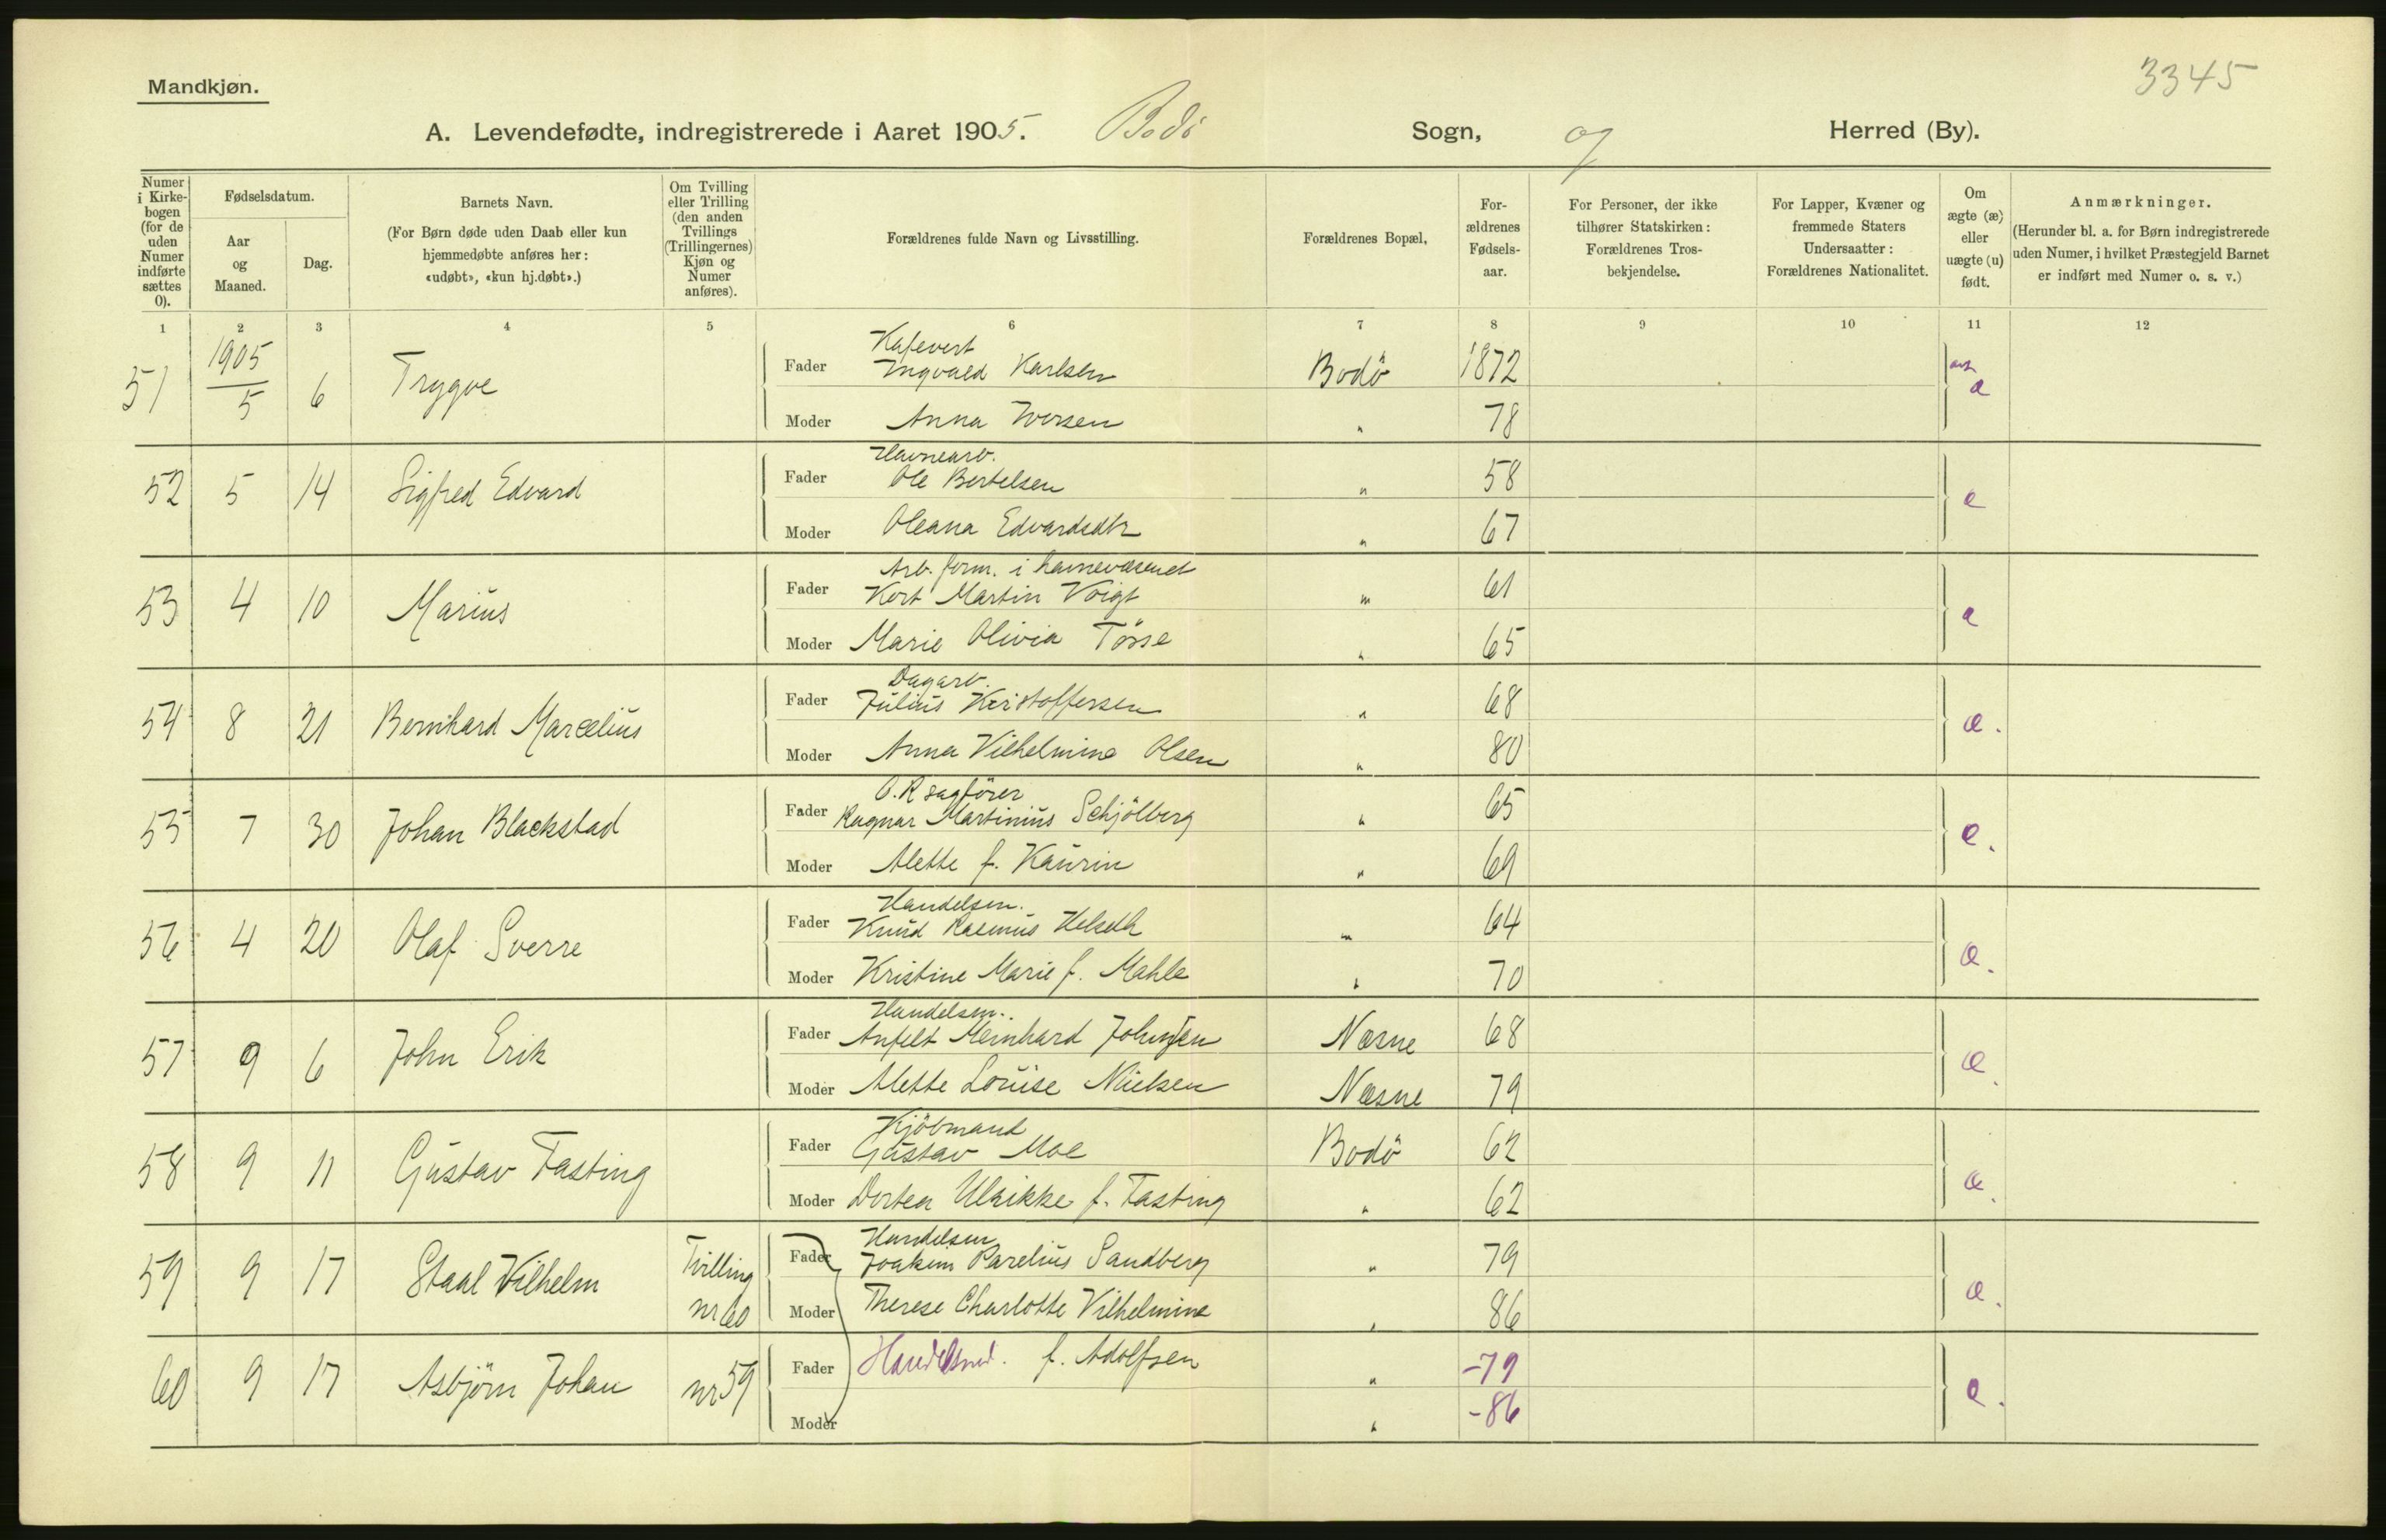 3345
Mandkjøn.
A. Levendefødte, indregistrerede i Aaret 1905. Bodö Sogn, og Herred (By).
Numer i Kirkebogen (for de uden Numer indførte sættes 0).
Fødselsdatum.
Aar og Maaned.
Dag.
Barnets Navn.
(For Børn døde uden Daab eller kun hjemmedøbte anføres her: «udøbt», «kun hj.døbt».)
Om Tvilling eller Trilling (den anden Tvillings (Trillingernes) Kjøn og Numer anføres).
Forældrenes fulde Navn og Livsstilling.
Forældrenes Bopæl,
For-ældrenes Fødsels-aar.
For Personer, der ikke tilhører Statskirken: Forældrenes Tros-bekjendelse.
For Lapper, Kvæner og fremmede Staters Undersaatter: Forældrenes Nationalitet.
Om ægte (æ) eller uægte (u) født.
Anmærkninger.
(Herunder bl. a. for Børn indregistrerede uden Numer, i hvilket Præstegjeld Barnet er indført med Numer o. s. v.)
1 2 3 4 5 6 7 8 9 10 11 12
Kafevert
51 1905/5 6 Trygve Fader Ingvald Karlsen Bodö 1872 æ
Moder Anna Iversen " 78
Havnearb.
52 5 14 Sigfred Edvard Fader Ole Bertelsen " 58 æ
Moder Oleana Edvardsdtr " 67
Arb. form. i havnevæsenet
53 4 10 Marius Fader Kort Martin Voigt " 61 æ
Moder Marie Olivia Tösse " 65
Dagarb.
54 8 21 Bernhard Marcelius Fader Julius Kristoffersen " 68 æ.
Moder Anna Vilhelmine Olsen " 80
O.R sagförer
55 7 30 Johan Blackstad Fader Ragnar Martinius Schjölberg " 65 æ.
Moder Alette f. Kaurin " 69
Handelsm.
56 4 20 Olaf Sverre Fader Knud Rasmus Helseth " 64 æ.
Moder Kristine Marie f. Mahle " 70
Handelsm.
57 9 6 John Erik Fader Anfelt Meinhard Johnsen Næsne 68 æ.
Moder Alette Louise Nielsen Næsne 79
Kjöbmand
58 9 11 Gustav Fasting Fader Gustav Moe Bodö 62 æ.
Moder Dortea Ulrikke f. Fasting " 62
Handelsm
59 9 17 Staal Vilhelm Tvilling Fader Joakim Parelius Sandberg " 79 æ.
nr 60 Moder Therese Charlotte Vilhelmine " 86
60 9 17 Asbjörn Johan nr 59 Fader Handelsmd. f. Adolfsen " -79 æ.
Moder " -86